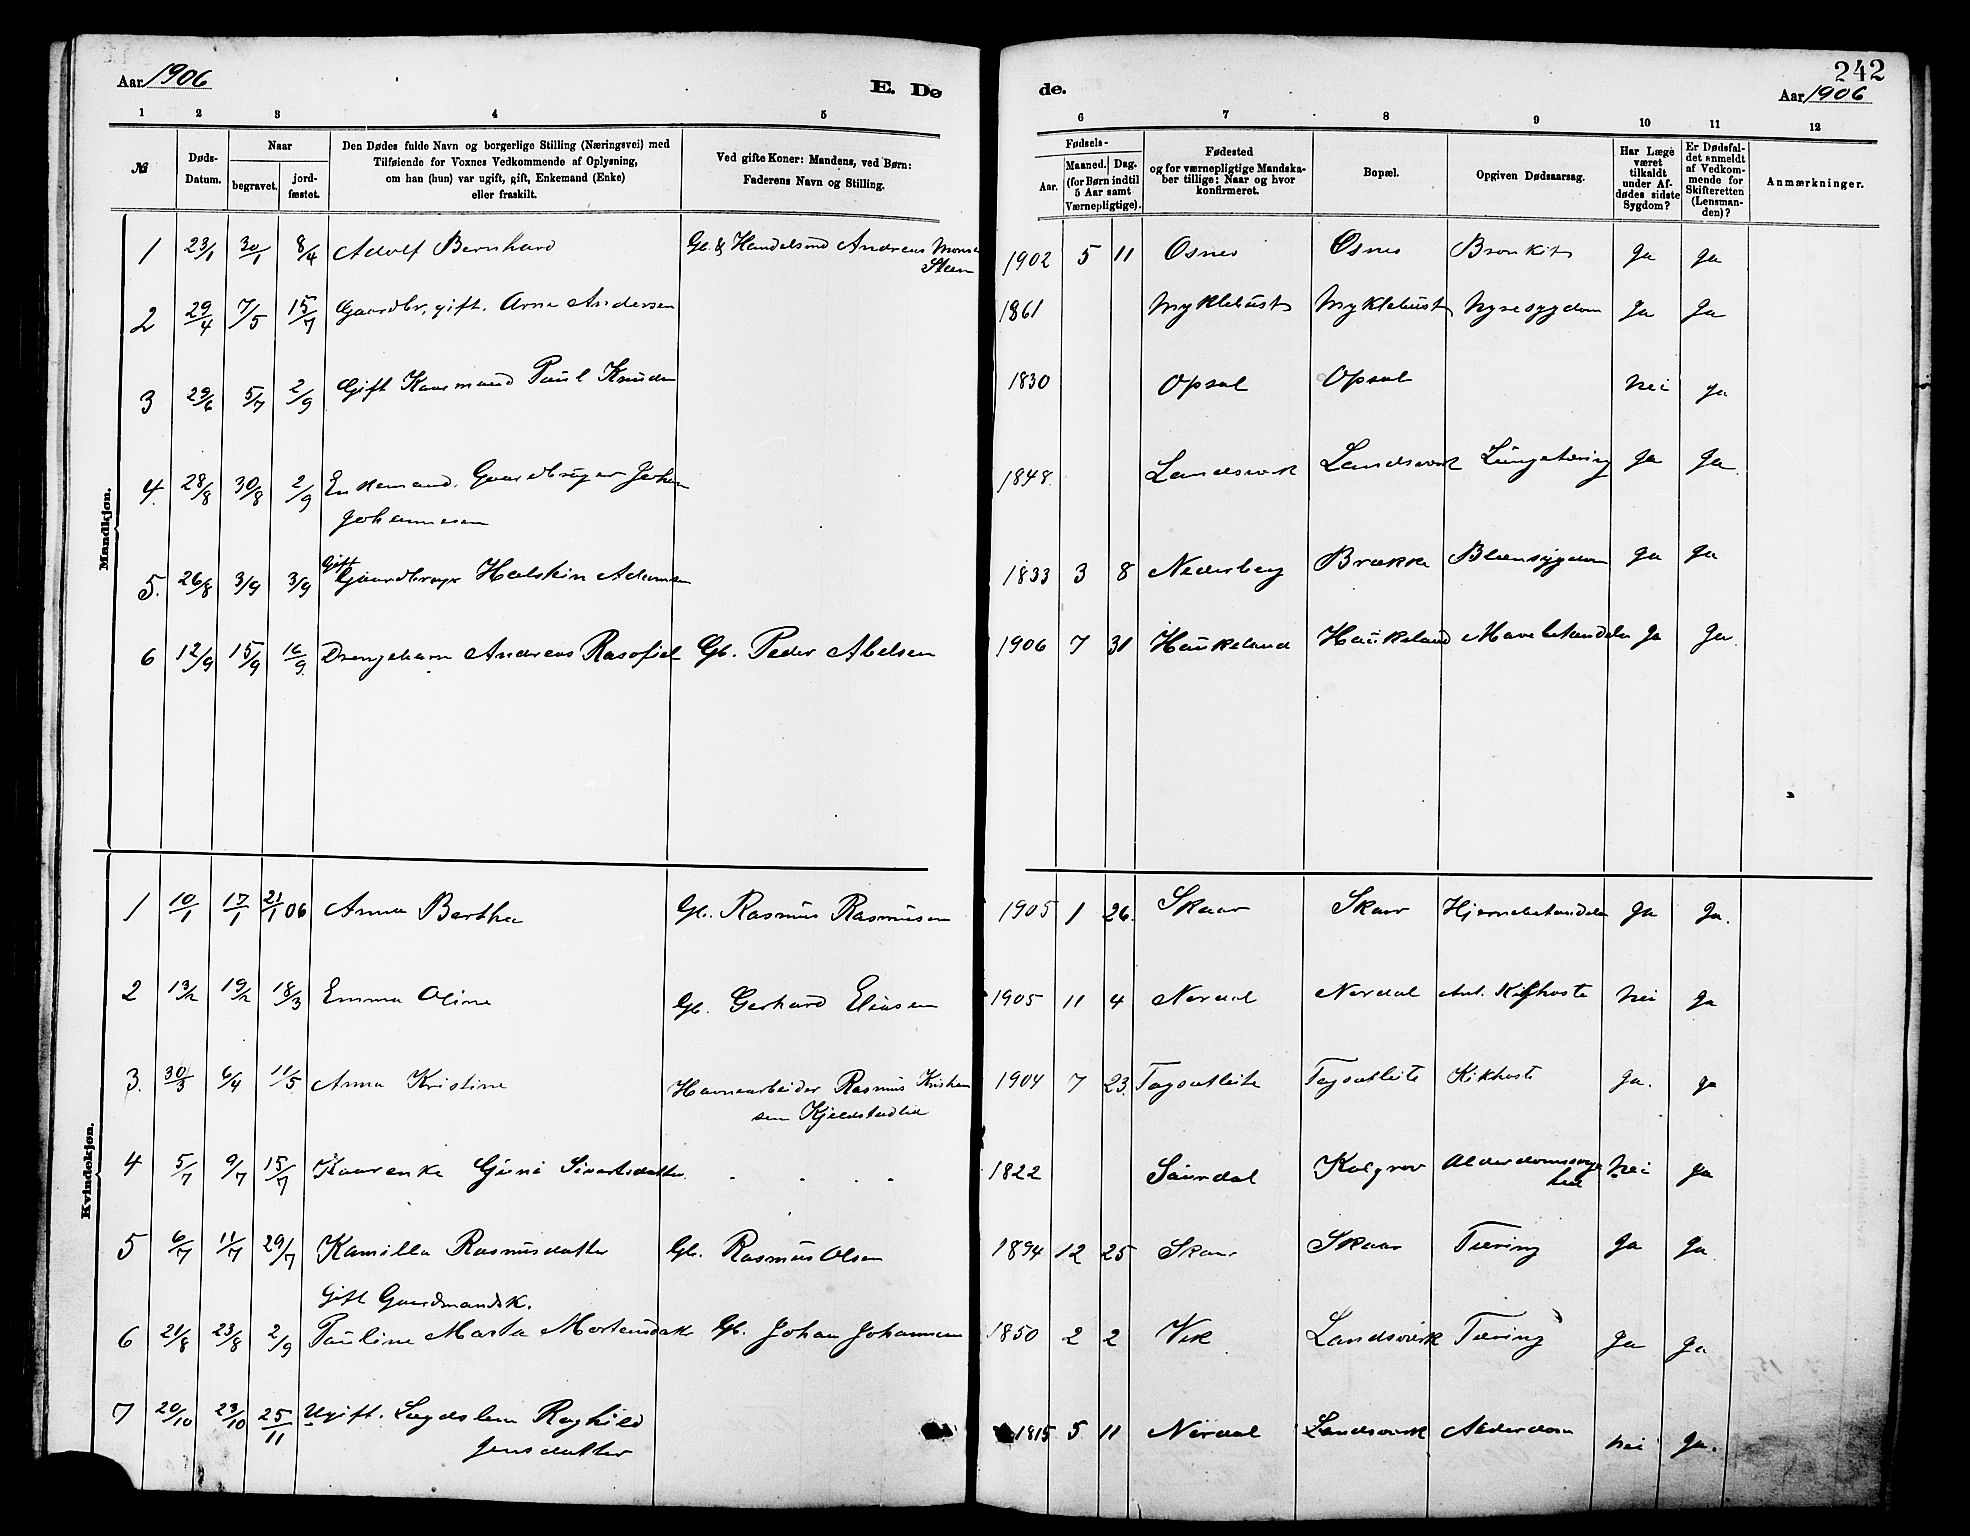 242
Aar 1906
E. Dø
de.
Aar 1906
1 2 3 4 5
6 7 8 9 10 11 12
№
Døds-
Datum.
Naar
begravet.
jord-
fæstet.
Den Dødes fulde Navn og borgerlige Stilling (Næringsvei) med
Tilføiende for Voxnes Vedkommende af Oplysning,
om han (hun) var ugift, gift, Enkemand (Enke)
eller fraskilt.
Ved gifte Koner: Mandens, ved Børn:
Faderens Navn og Stilling.
Fødsels-
Aar.
Maaned. Dag.
(for Børn indtil
5 Aar samt
Værnepligtige).
Fødested
og for værnepligtige Mandska-
ber tillige: Naar og hvor
konfirmeret.
Bopæl.
Opgiven Dødsaarsag.
Har Læge
været
tilkaldt
under Af-
dødes sidste
Sygdom?
Er Dødsfal-
det anmeldt
af Vedkom-
mende for
Skifteretten
(Lensman-
den)?
Anmærkninger.
Mandkjøn.
1 23/1 30/1 8/4 Adolf Bernhard Gb. & Handelsmd Andreas Monsen 1902 5 11 Osnes Osnes Bronkit Ja Ja
Steen
2 29/4 7/5 15/7 Gaardbr, gift. Arne Andersen 1861 Myklebust Myklebust Nyresygdom Ja Ja
3 29/6 5/7 2/9 Gift Kaarmand Paul Knudsen 1830 Opsal Opsal Nei Ja
4. 28/8 30/8 2/9 Enkemand. Gaardbruger Johan 1848. Landsverk Landsverk Lungetæring Ja Ja.
Johannesen
Gift
5. 26/8 3/9 3/9 Gaardbruger Halstein Adamsen 1833 3 8 Nederberg Brække Blæresygdom Ja Ja
6 12/9 15/9 16/9. Drengebarn Andreas Gb. Peder Abelsen 1906 7 31 Haukeland Haukeland Mavebetændelse Ja Ja.
Kvindekjøn.
1 10/1 17/1 21/1 06 Anna Bertha Gb. Rasmus Rasmusen 1905 1 26. Skaar Skaar Hjernebetændelse Ja Ja.
2 13/2 19/2 18/3 Emma Oline Gb. Gerhard Eliasen 1905 11 4 Nordal Nordal Ant. Kighoste Nei Ja
3. 30/3 6/4 11/5 Anna Kristine Havnearbeider Rasmus Kristian 1904 7 23. Tagsetleite Tagsetleite Kikhoste Ja. Ja
sen Kjeldstadlid
4 5/7 9/7 15/7 Kaarenke Guni Sivertsdatter . . . . 1822 Saurdal Kalgrov Alderdomssvag Nei Ja
hed
5 6/7 11/7 29/7 Kamilla Rasmusdatter Gb. Rasmus Olsen 1894 12 25 Skaar Skaar Tæring Ja Ja
Gift Gaardmandsk.
6 21/8 23/8 2/9 Pauline Marta Mortensdatr Gb. Johan Johansen 1850 2 2 Vik Landsverk Tæring Ja Ja
7 20/10 23/10 25/11 Ugift. Lægdslem Raghild 1815 5 11 Nordal Landsverk Alderdom Nei Ja.
Jensdatter